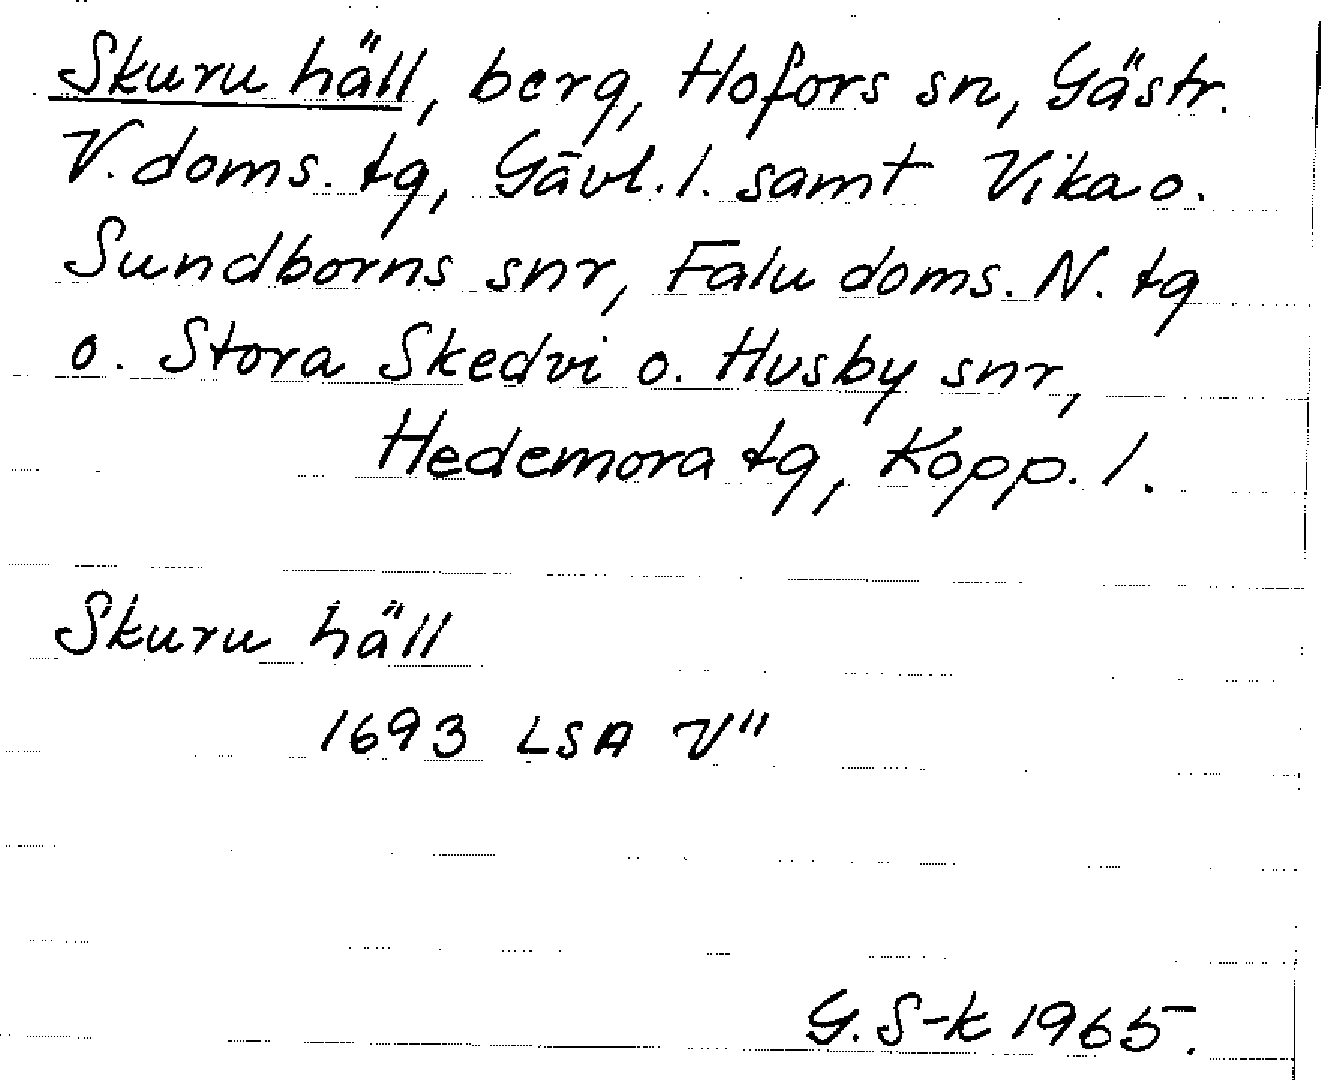 Skuru häll, berg, Hofors sn, Gästr.
V. doms. tg, Gävl. l. samt Vika o.
Sundborns snr, Falu doms. N. tg
o. Stora Skedvi o. Husby snr,
Hedemora tg, Kopp. l.
Skuru häll
1693 LSA V"
G. S-k 1965.